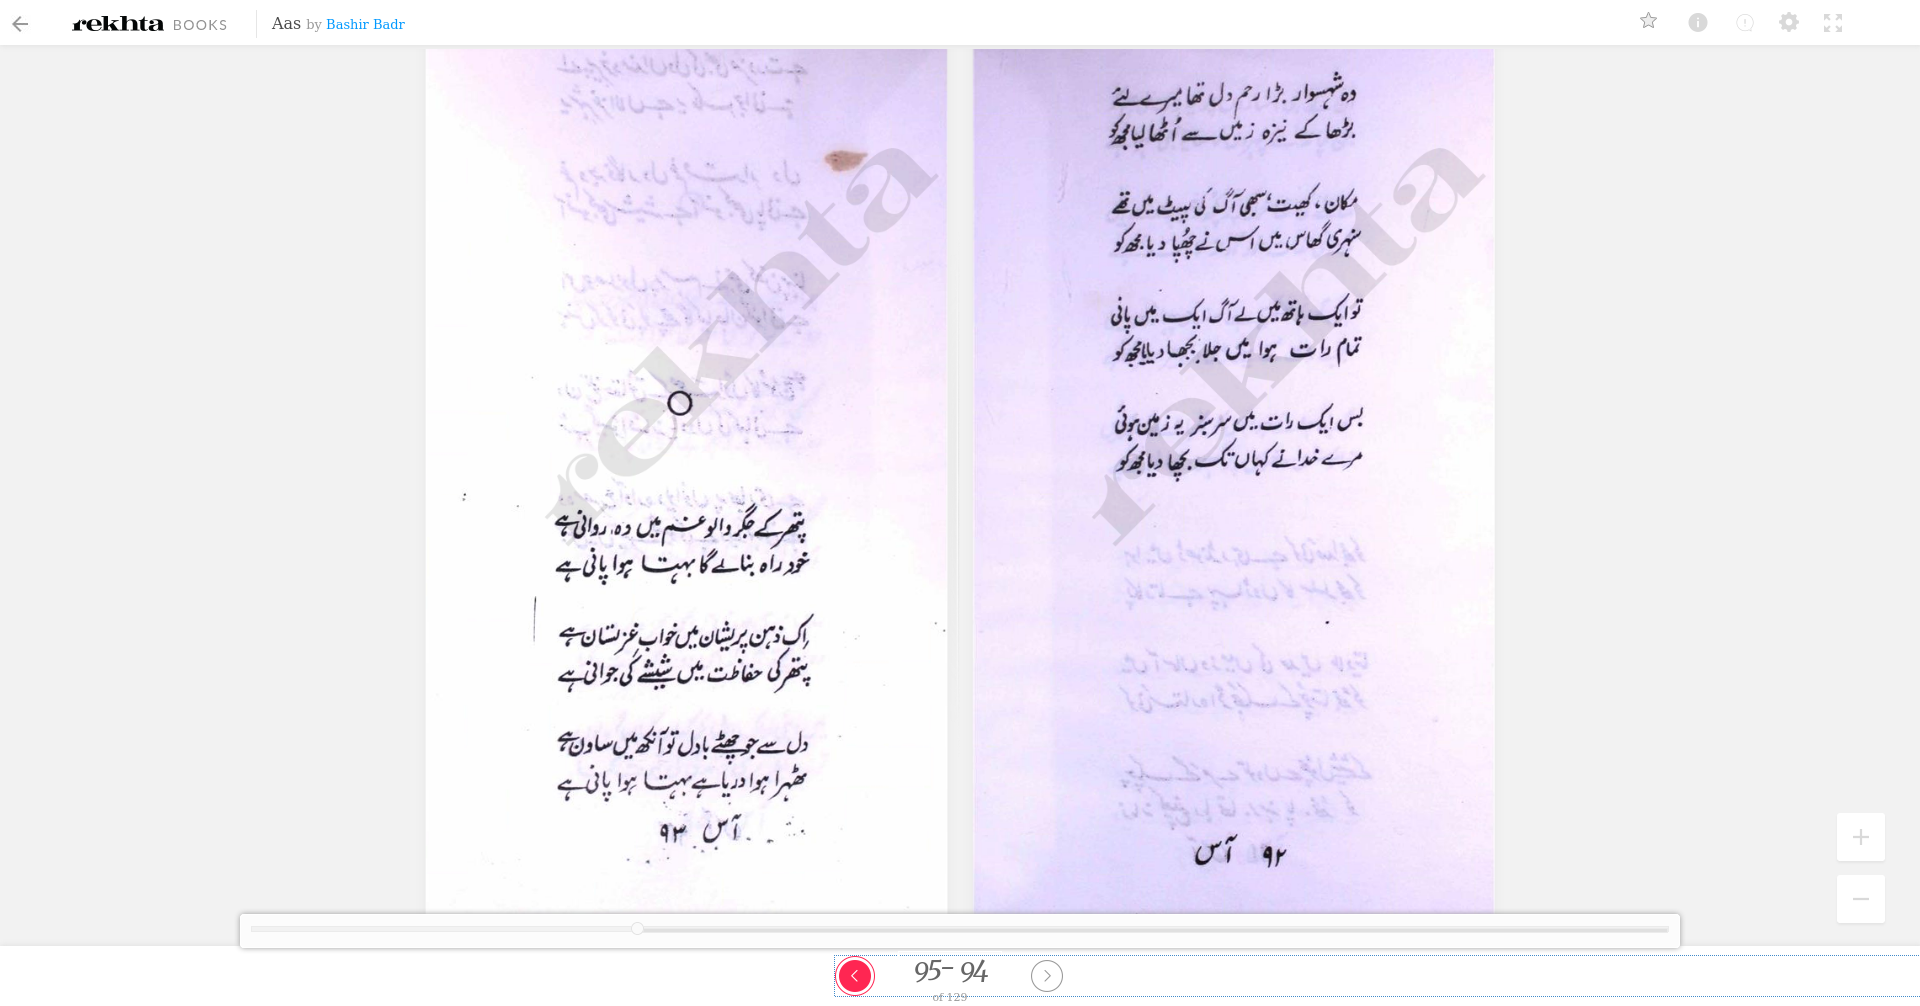 rekhta BOOKS Aas by Bashir Badr
وہ شہسوار بڑا رحم دل تھا میرے لئے
بڑھا کے نیزہ زمیں سے اُٹھا لیا مجھ کو
مکان، کھیت، سبھی آگ کی لپیٹ میں تھے
سنہری گھاس میں اس نے چھُپا دیا مجھ کو
تو ایک ہاتھ میں لے آگ ایک میں پانی
تمام رات ہوا میں جلا بجھا دیا مجھ کو
بس ایک رات میں سرسبز یہ زمین ہوئی
مرے خدا نے کہاں تک بچھا دیا مجھ کو
۹۲ آس
پتھر کے جگر والو غم میں وہ روانی ہے
خود راہ بنالے گا بہتا ہوا پانی ہے
اِک ذہن پریشان میں خواب غزلستان ہے
پتھر کی حفاظت میں شیشے کی جوانی ہے
دل سے جو چھٹے بادل تو آنکھ میں ساون ہے
ٹھہرا ہوا دریا ہے بہتا ہوا پانی ہے
آس ۹۳
rekhta
rekhta
95- 94
of 129